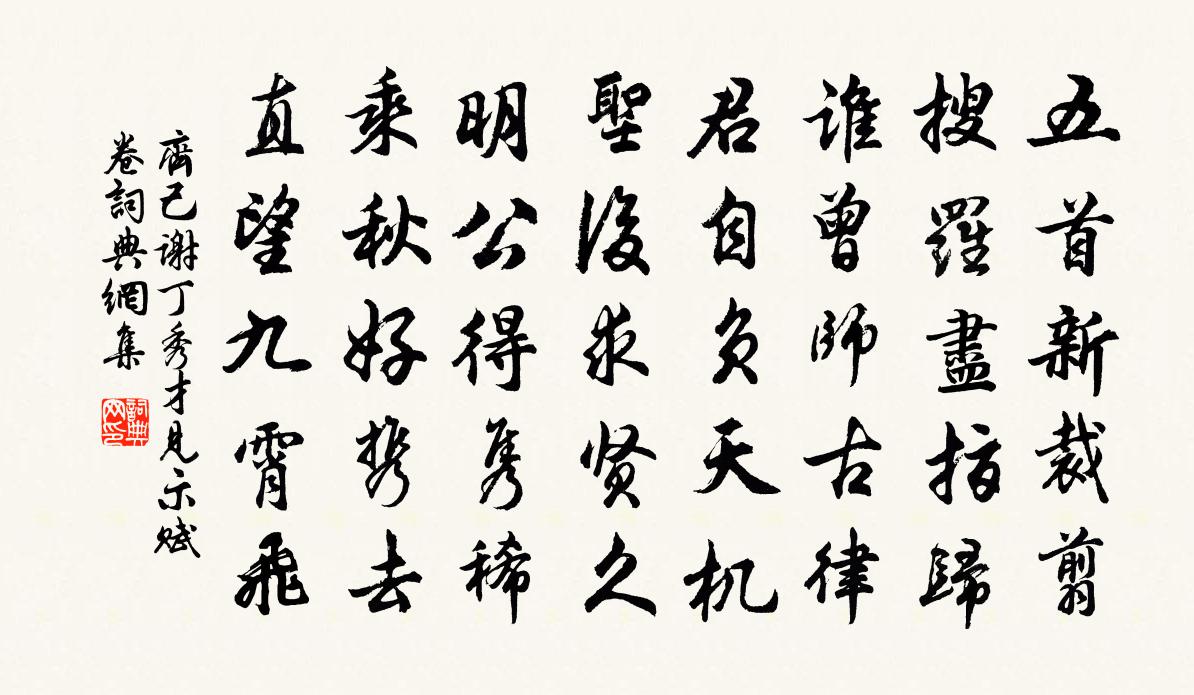 五首新裁剪
搜羅盡指歸
誰曾師古律
君自負天机
聖後求贤久
明公得隽稀
乘秋好携去
直望九霄飛
齊己谢丁秀才見示赋
卷詞典網集
詞典
网印